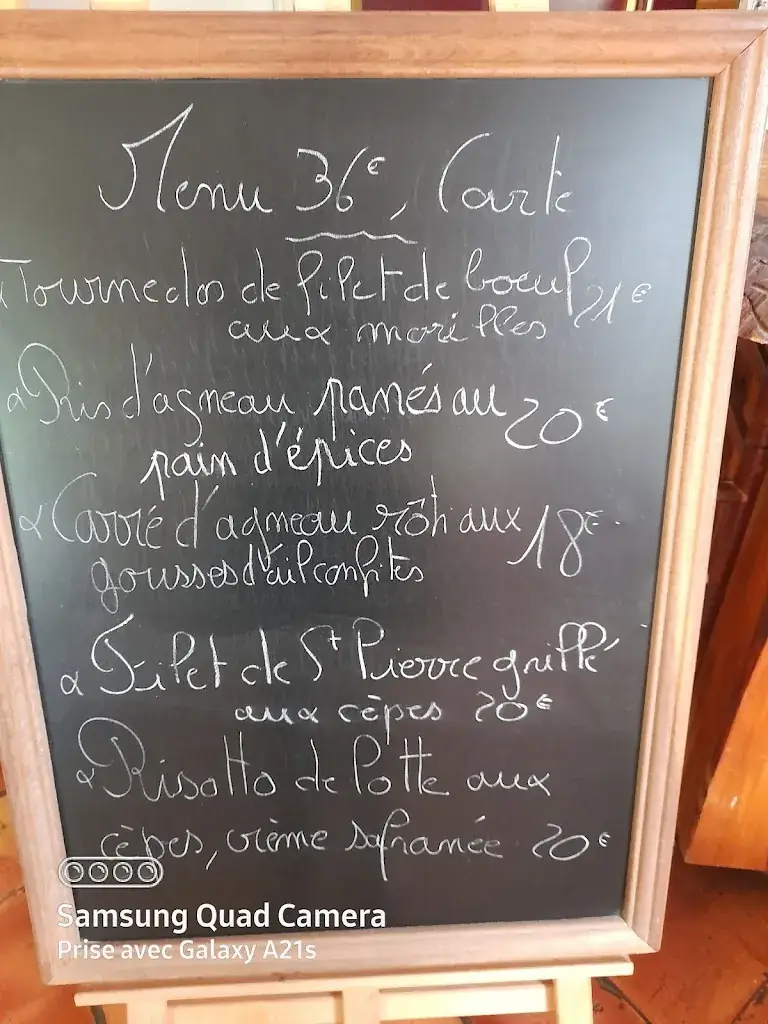 Menu 36€, Carte
Tournedos de filet de boeuf 21€
aux morilles
Ris d'agneau panés au 20€
pain d'épices
Carré d'agneau rôti aux 18€
gousses d'ail confites
Filet de St Pierre grillé
aux cèpes 20€
Risotto de Lotte aux
cèpes, crème safranée 20€
Samsung Quad Camera
Prise avec Galaxy A21s